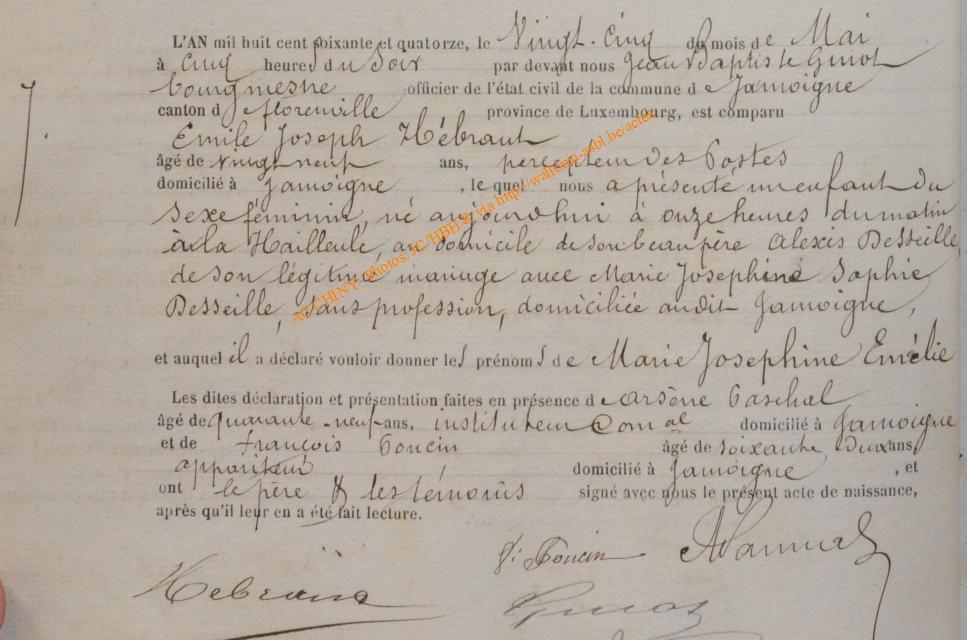 L'AN mil huit cent soixante et quatorze, le Vingt-Cinq du mois de Mai
à Cinq heures du Soir par devant nous Jean Baptiste Guiot
bourgmestre officier de l'état civil de la commune de Jamoigne
canton de florenville province de Luxembourg, est comparu
Emile Joseph Hébrant
âgé de vingt neuf ans, percepteur des Postes
domicilié à Jamoigne, lequel nous a présenté un enfant du
sexe féminin, né aujourd'hui à onze heures du matin
à la Hailleule, au domicile de son beau père Alexis Desseille,
de son légitime mariage avec Marie Josephine Sophie
Desseille, sans profession, domiciliée audit Jamoigne,
et auquel il a déclaré vouloir donner les prénoms de Marie Josephine Emélie
Les dites déclaration et présentation faites en présence de Arsène Paschal
âgé de quarante-neuf ans, instituteur Com al domicilié à Jamoigne
et de François Poncin âgé de soixante deux ans,
appariteur domicilié à Jamoigne, et
ont le père & les témoins signé avec nous le présent acte de naissance,
après qu'il leur en a été fait lecture.
Poncin
Hebrant
Guiot
AC CHINY - Photos: JC/HBH & via http://walhean-asbl.be/actes